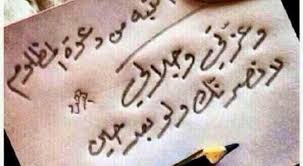 من دعوة المظلوم
وعزتي وجلالي
لأنصرنك ولو بعد حين